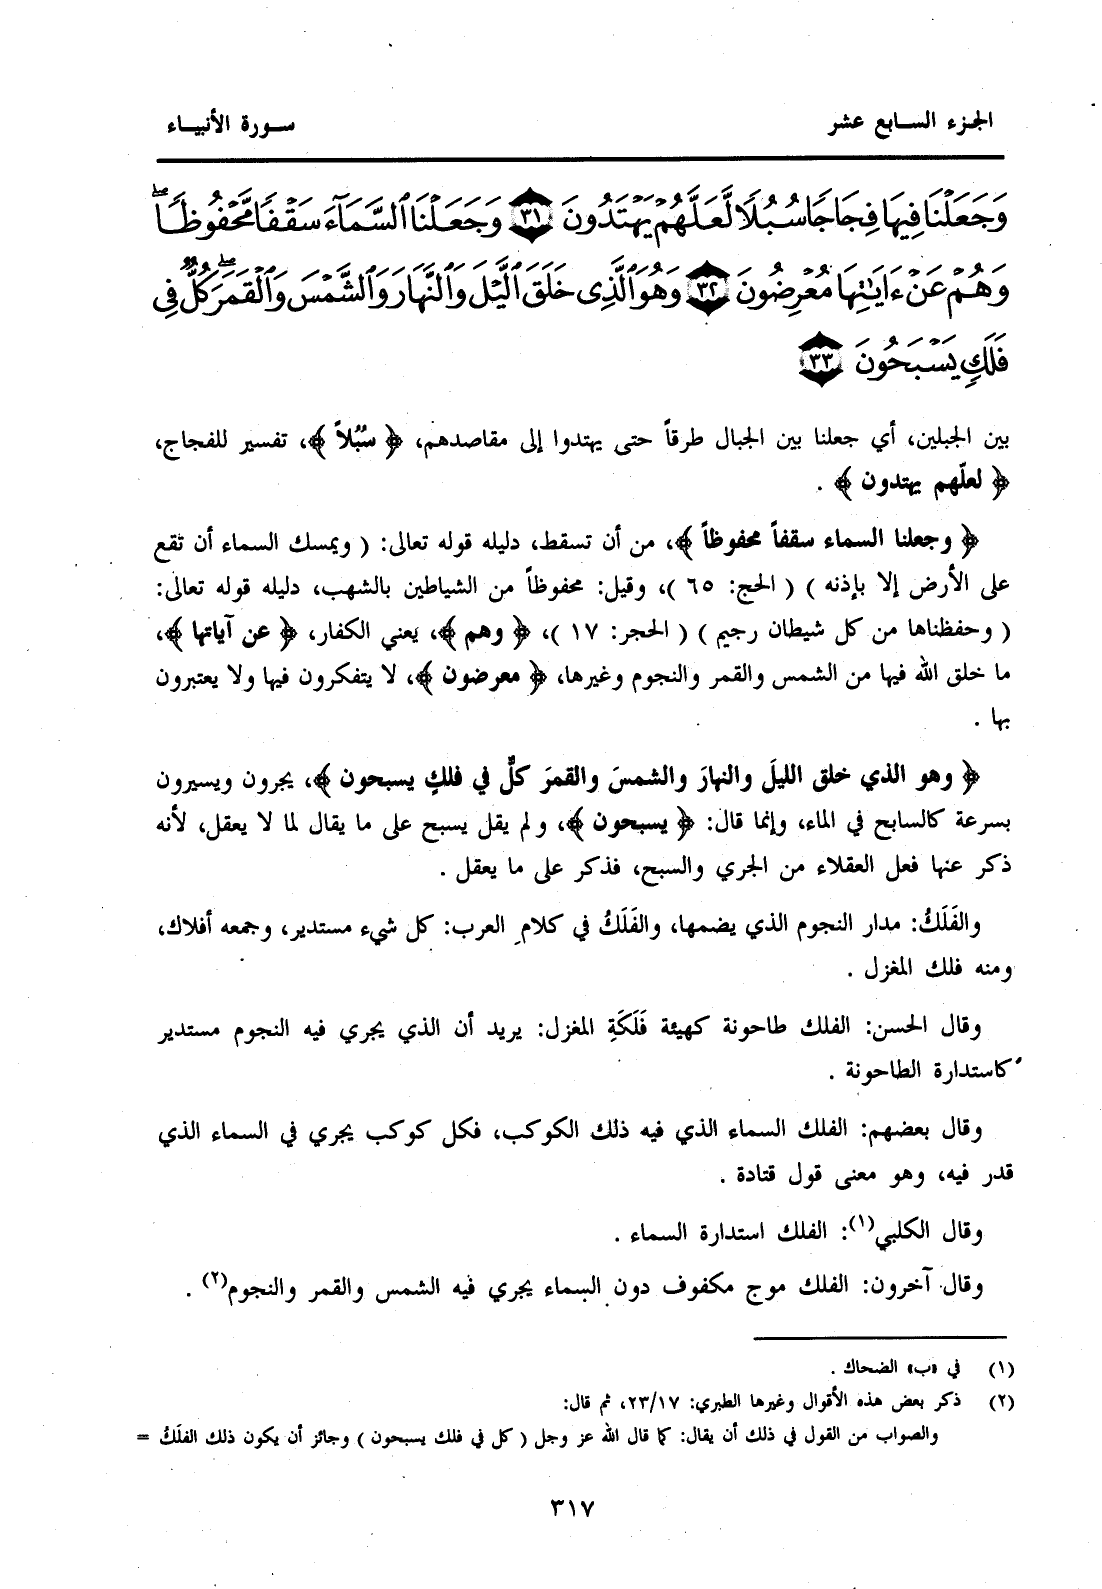 الجزء السابع عشر
سورة الأنبياء
وَجَعَلْنَا فِيهَا فِجَاجًا سُبُلًا لَّعَلَّهُمْ يَهْتَدُونَ ٣١ وَجَعَلْنَا السَّمَاءَ سَقْفًا مَّحْفُوظًا ۖ
وَهُمْ عَنْ ءَايَٰتِهَا مُعْرِضُونَ ٣٢ وَهُوَ الَّذِى خَلَقَ الَّيْلَ وَالنَّهَارَ وَالشَّمْسَ وَالْقَمَرَ ۖ كُلٌّ فِى
فَلَكٍ يَسْبَحُونَ ٣٣
بين الجبلين، أي جعلنا بين الجبال طرقاً حتى يهتدوا إلى مقاصدهم، ﴿ سُبُلاً ﴾، تفسير للفجاج،
﴿ لعلّهم يهتدون ﴾ .
﴿ وجعلنا السماء سقفاً محفوظاً ﴾، من أن تسقط، دليله قوله تعالى: ( ويمسك السماء أن تقع
على الأرض إلا بإذنه ) ( الحج: ٦٥ )، وقيل: محفوظاً من الشياطين بالشهب، دليله قوله تعالى:
( وحفظناها من كل شيطان رجيم ) ( الحجر: ١٧ )، ﴿ وهم ﴾، يعني الكفار، ﴿ عن آياتها ﴾،
ما خلق الله فيها من الشمس والقمر والنجوم وغيرها، ﴿ معرضون ﴾، لا يتفكرون فيها ولا يعتبرون
بها .
﴿ وهو الذي خلق الليلَ والنهارَ والشمسَ والقمرَ كلٌّ في فلكٍ يسبحون ﴾، يجرون ويسيرون
بسرعة كالسابح في الماء، وإنما قال: ﴿ يسبحون ﴾، ولم يقل يسبح على ما يقال لما لا يعقل، لأنه
ذكر عنها فعل العقلاء من الجري والسبح، فذكر على ما يعقل .
والفَلَكُ: مدار النجوم الذي يضمها، والفَلَكُ في كلام العرب: كل شيء مستدير، وجمعه أفلاك،
ومنه فلك المغزل .
وقال الحسن: الفلك طاحونة كهيئة فَلَكَةِ المغزل: يريد أن الذي يجري فيه النجوم مستدير
كاستدارة الطاحونة .
وقال بعضهم: الفلك السماء الذي فيه ذلك الكوكب، فكل كوكب يجري في السماء الذي
قدر فيه، وهو معنى قول قتادة .
وقال الكلبي(١): الفلك استدارة السماء .
وقال آخرون: الفلك موج مكفوف دون السماء يجري فيه الشمس والقمر والنجوم(٢) .
(١) في «ب» الضحاك .
(٢) ذكر بعض هذه الأقوال وغيرها الطبري: ٢٣/١٧، ثم قال:
والصواب من القول في ذلك أن يقال: كما قال الله عز وجل ( كل في فلك يسبحون ) وجائز أن يكون ذلك الفلَكُ =
٣١٧